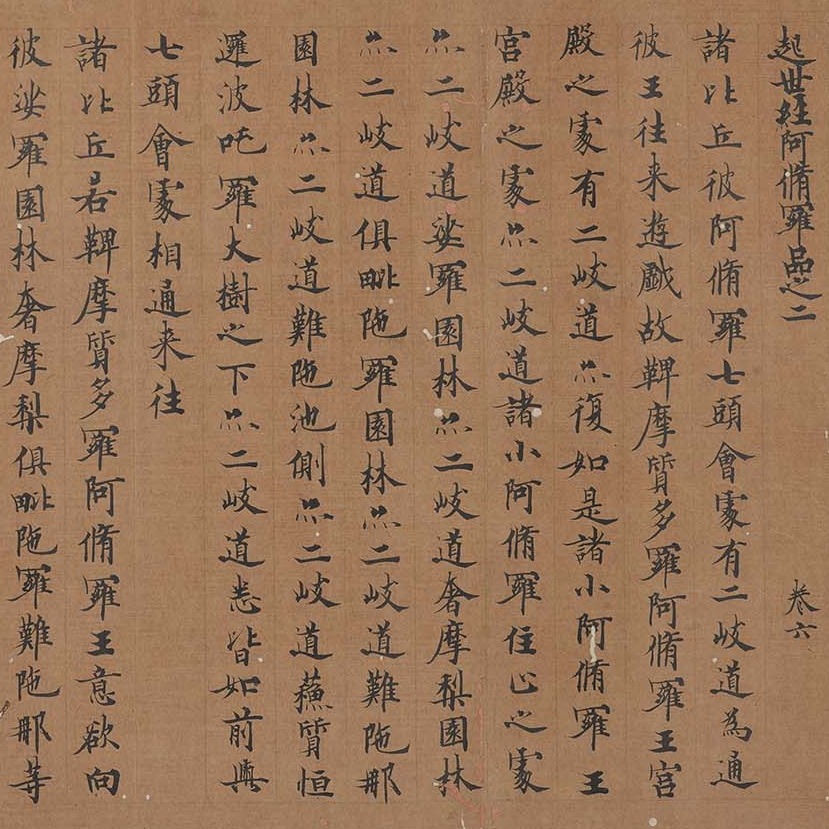 起世経阿脩羅品之二 卷六
諸比丘彼阿脩羅七頭會處有二岐道為通
彼王往来遊戲故鞞摩質多羅阿脩羅王宮
殿之處有二岐道亦復如是諸小阿脩羅王
宮殿之處亦二岐道諸小阿脩羅住止之處
亦二岐道娑羅園林亦二岐道奢摩梨園林
亦二岐道俱毗陁羅園林亦二岐道難陁那
園林亦二岐道難陁池側亦二岐道蘓質恒
邏波吒羅大樹之下亦二岐道悉皆如前與
七頭會處相通来往
諸比丘若鞞摩質多羅阿脩羅王意欲向
彼娑羅園林奢摩梨俱毗陁羅難陁那等